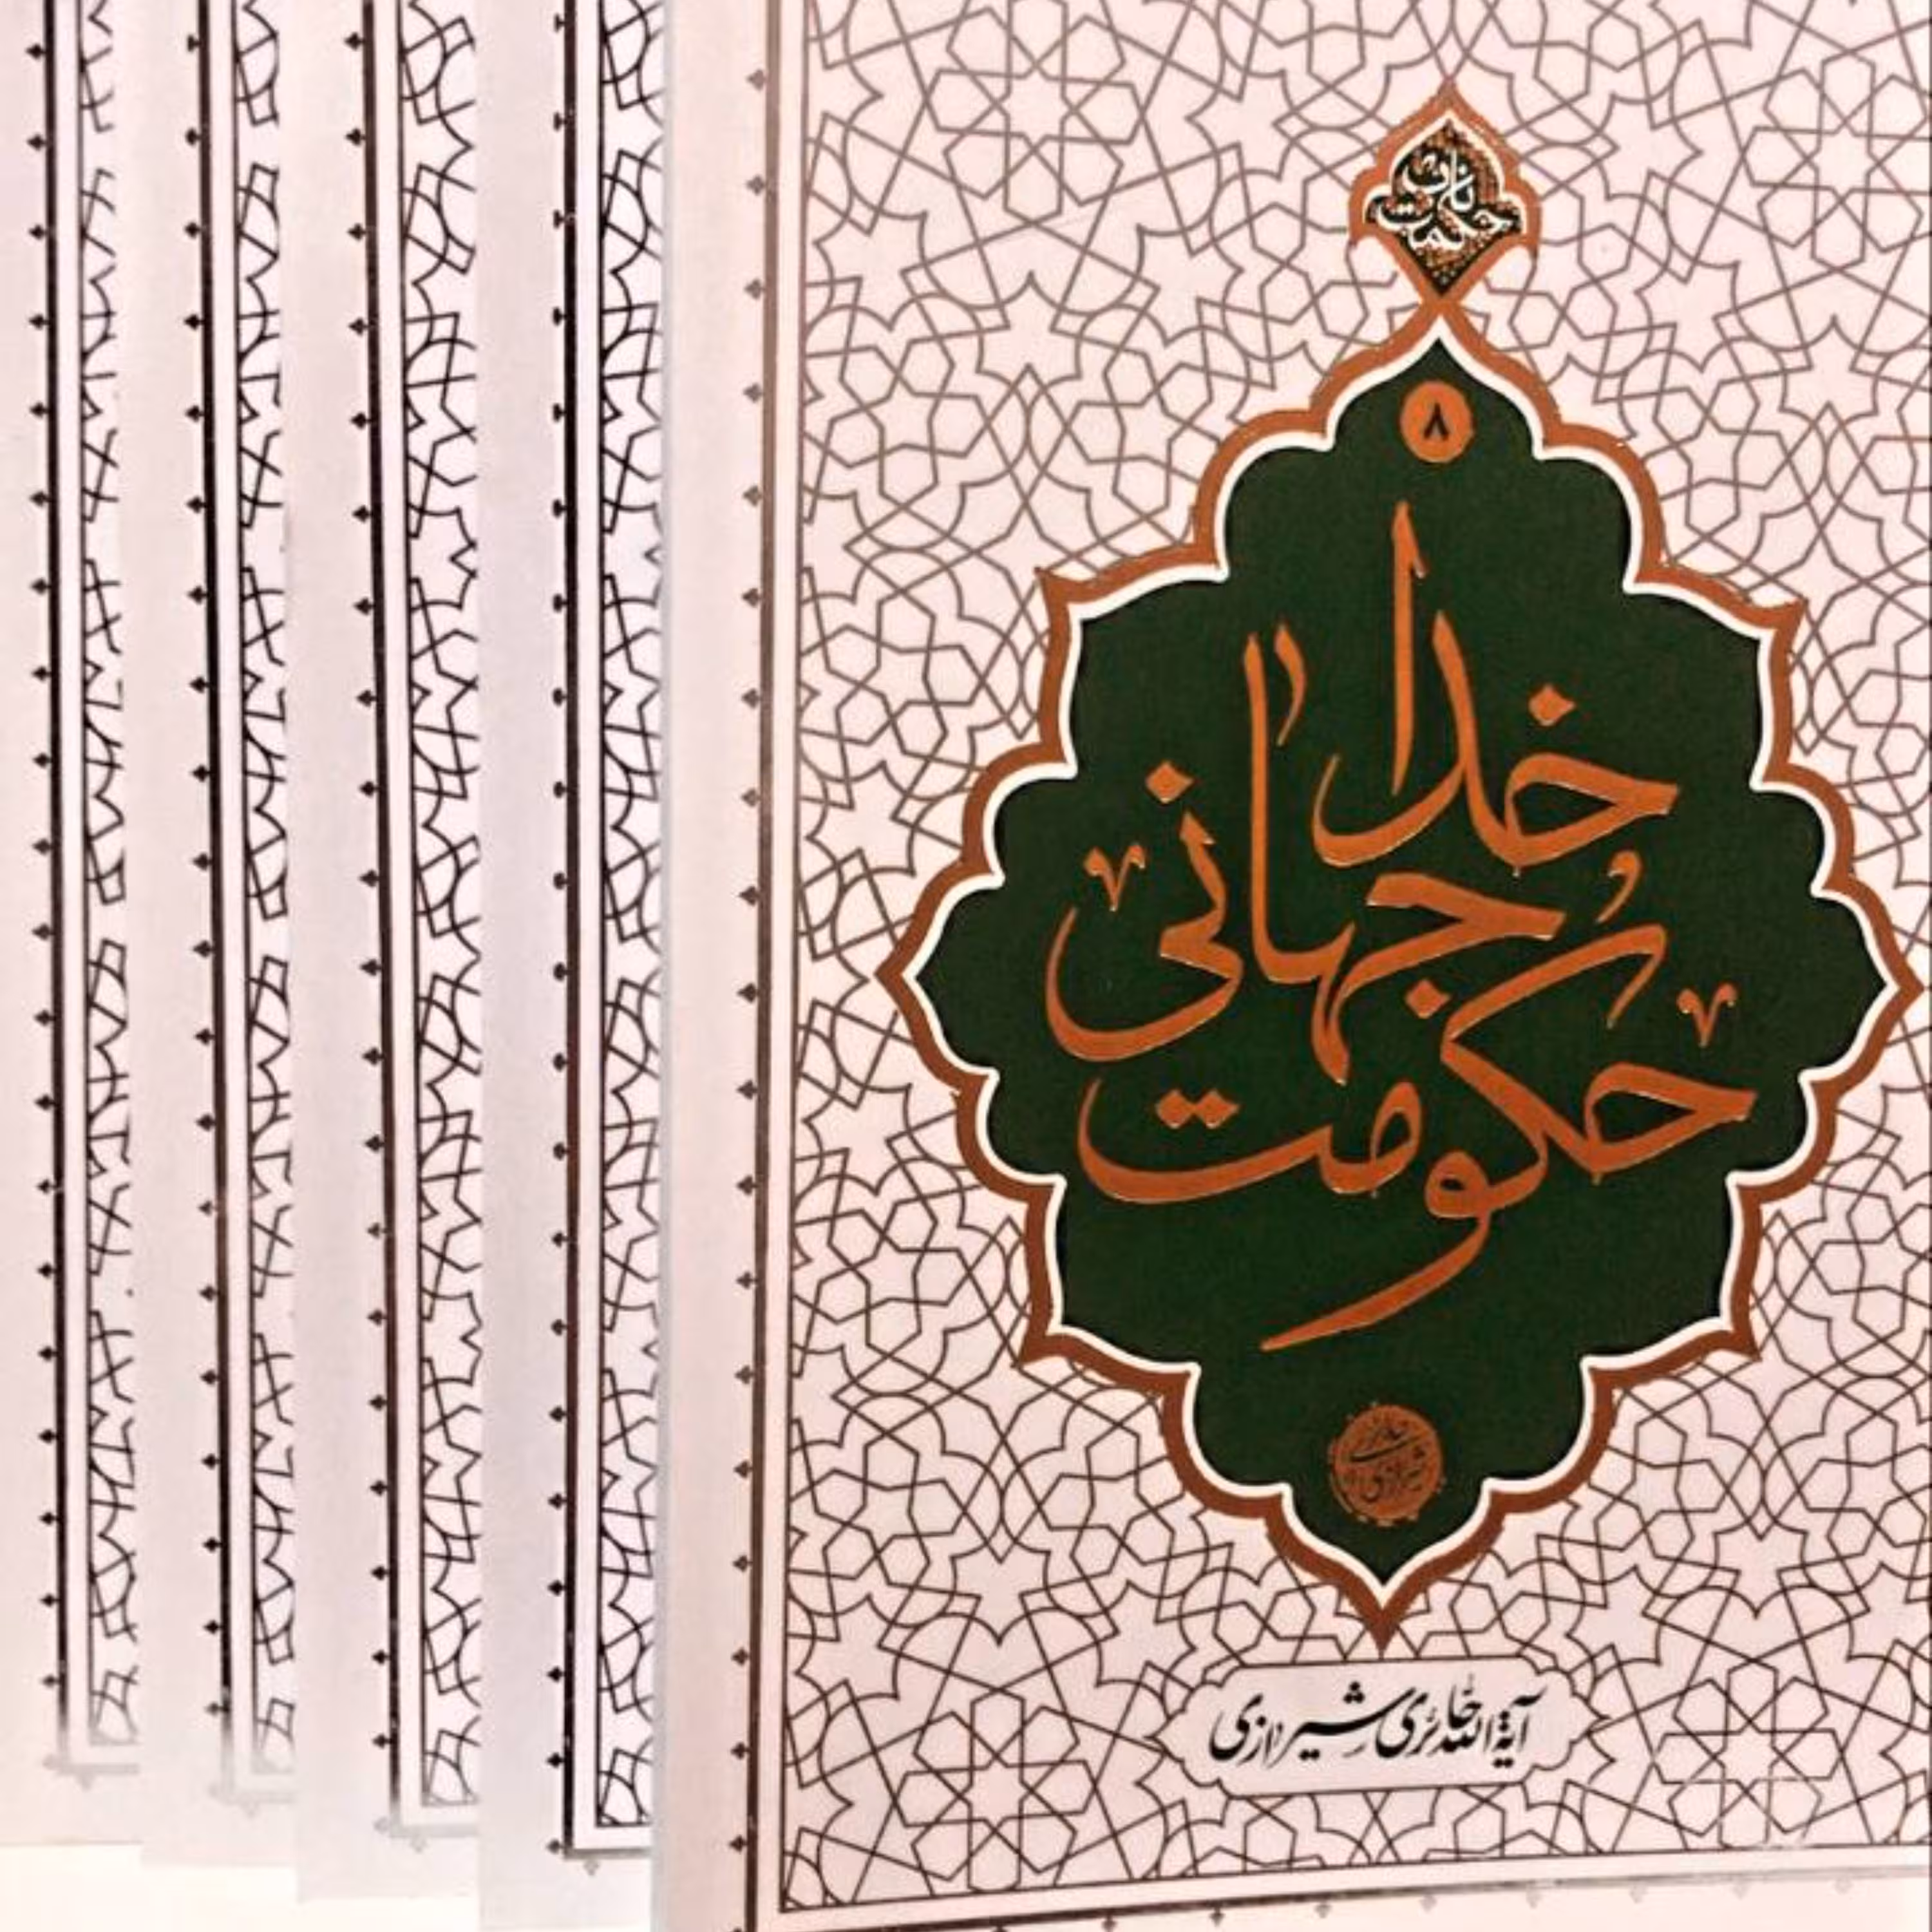 ۸
حکومت
جهانی
خدا
حائری
شیرازی
آیة الله حائری شیرازی